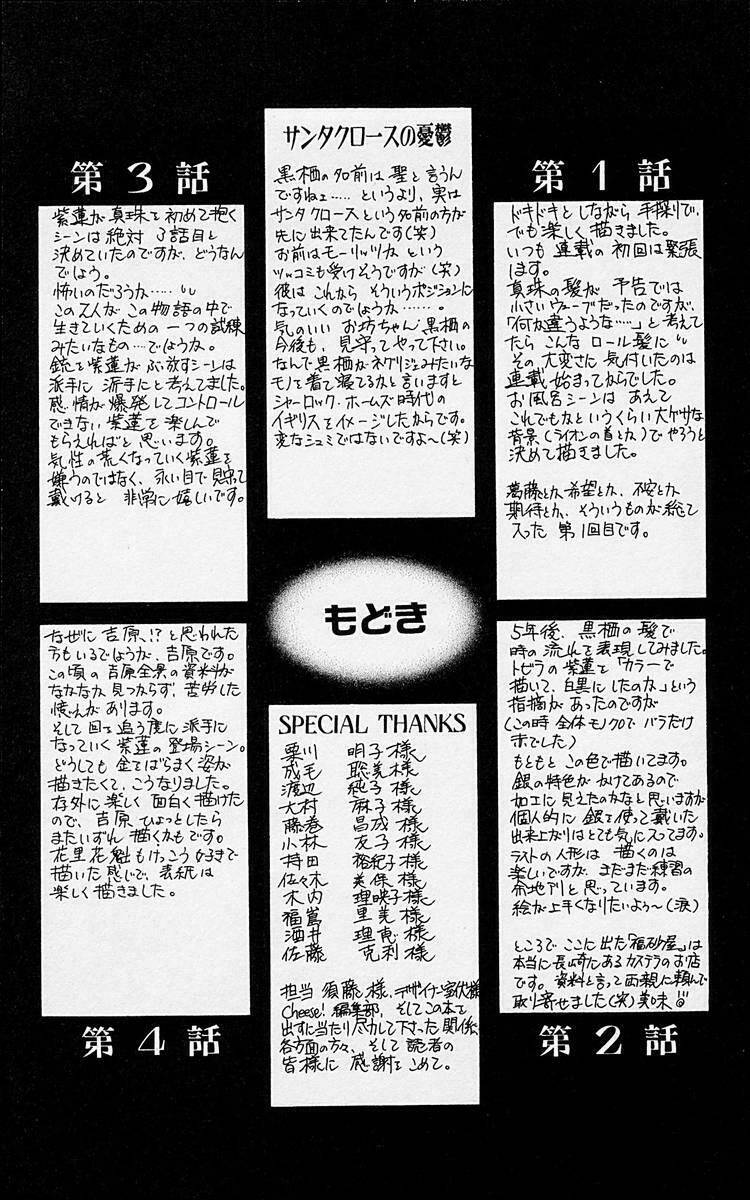 第1話
ドキドキとしながら 手探りで、
でも楽しく描きました。
いつも 連載の 初回は緊張
します。
真珠の髪が 予告では
小さいウェーブだったのですが、
「何か違うような……」と考えて
たら こんな ロール髪に
その大変さに 気付いたのは
連載始まってからでした。
お風呂シーンは あえて
これでもなというくらい大ゲサな
背景(ライオンの首とか)でやろうと
決めて描きました。
葛藤とか、希望とか、不安とか
期待とか、そういうものが総て
入った 第1回目です。
第2話
5年後、黒栖の髪で
時の流れを表現してみました。
トビラの紫蓮を「カラーで
描いて、白黒にしたのか」という
指摘が あったのですが
(この時 全体モノクロで バラだけ
赤でした)
もともと この色で描いてます。
銀の特色が かけてあるので
加工に見えたのかなと思いますが
個人的に 銀を使って戴いた
出来上がりはとても気に入ってます。
ラストの人形は 描くのは
楽しいですが、まだまだ練習の
余地アリと思っています。
絵が上手くなりたいよう〜(涙)
ところで ここに出た「福砂屋」は
本当に長崎にあるカステラのお店
です。資料と言って両親に頼んで
取り寄せました(笑)美味
サンタクロースの憂鬱
黒栖の名前は 聖と言うん
ですねェ…… というより、実は
サンタクロースという名前の方が
先に出来てたんです(笑)
お前はモーリッツか という
ツッコミも受けそうですが(笑)
彼は これから そういうポジションに
なっていくのでしょうか………。
気のいい お坊ちゃん・黒栖の
今後も、見守ってやって下さい。
なんで黒栖が ネグリジェみたいな
モノを着て寝てるかと言いますと
シャーロック・ホームズ時代の
イギリスをイメージしたからです。
変なシュミではないですよ〜(笑)
もどき
SPECIAL THANKS
栗川 明子様
成毛 聡美様
渡辺 純子様
大村 麻子様
藤巻 昌成様
小林 友子様
持田 裕紀子様
佐々木 美保様
木内 理映子様
福嶌 里美様
酒井 理恵様
佐藤 克利様
担当 須藤様、デザイナー室伏様
Cheese!編集部、そしてこの本を
出すに当たり尽力して下さった関係
各方面の方々、そして読者の
皆様に 感謝をこめて。
第3話
紫蓮が 真珠を 初めて抱く
シーンは絶対 3話目と
決めていたのですが、どうなん
でしょう。
怖いのだろうか……
この2人が この物語の中で
生きていくための 一つの試練
みたいなもの…でしょうか。
銃を紫蓮がぶっ放すシーンは
派手に 派手にと考えてました。
感情が爆発してコントロール
できない 紫蓮を 楽しんで
もらえればと 思います。
気性の荒くなっていく紫蓮を
嫌うのではなく、永い目で見守って
戴けると 非常に嬉しいです。
第4話
なぜに 吉原!?と思われた
方もいるでしょうが、吉原です。
この頃の吉原全景の資料が
なかなか見つからず、苦労した
憶えが あります。
そして回を追う度に派手に
なっていく紫蓮の登場シーン。
どうしても 金をばらまく姿が
描きたくて、こうなりました。
存外に楽しく 面白く描けた
ので、吉原 ひょっとしたら
またいずれ 描くかもです。
花里花魁もけっこう好きで
描いた感じで、表紙は
楽しく描きました。